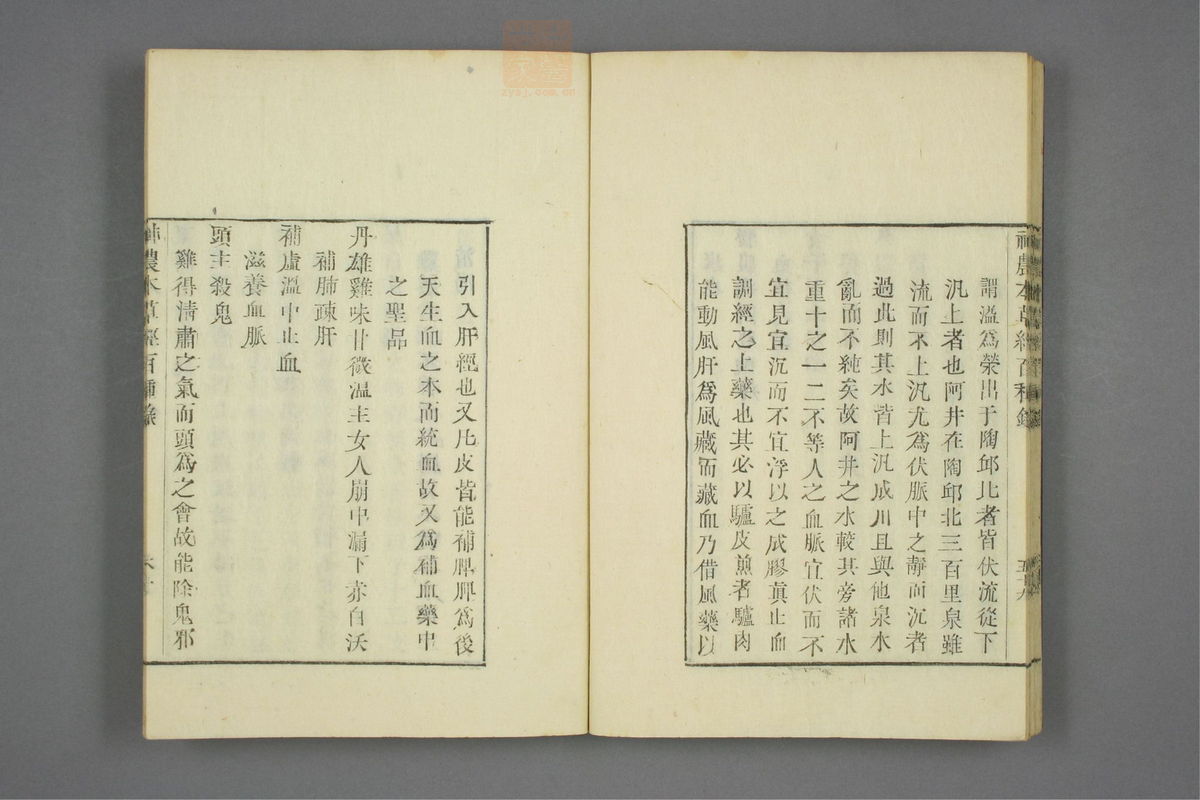 謂溢爲滎出于陶邱北者皆伏流從下
汎上者也阿井在陶邱北三百里泉雖
流而不上汎尤爲伏脈中之靜而沉者
過此則其水皆上汎成川且與他泉水
亂而不純矣故阿井之水較其旁諸水
重十之一二不等人之血脈宜伏而不
宜見宜沉而不宜浮以之成膠真止血
調經之上藥也其必以驢皮煎者驢肉
能動風肝爲風藏而藏血乃借風藥以
引入肝經也又凡皮皆能補脾脾爲後
天生血之本而統血故又爲補血藥中
之聖品
丹雄雞味甘微溫主女人崩中漏下赤白沃
補肺疎肝
補虛溫中止血
滋養血脈
頭主殺鬼
雞得淸肅之氣而頭爲之會故能除鬼邪
神農本草經百種錄
zysj.com.cn